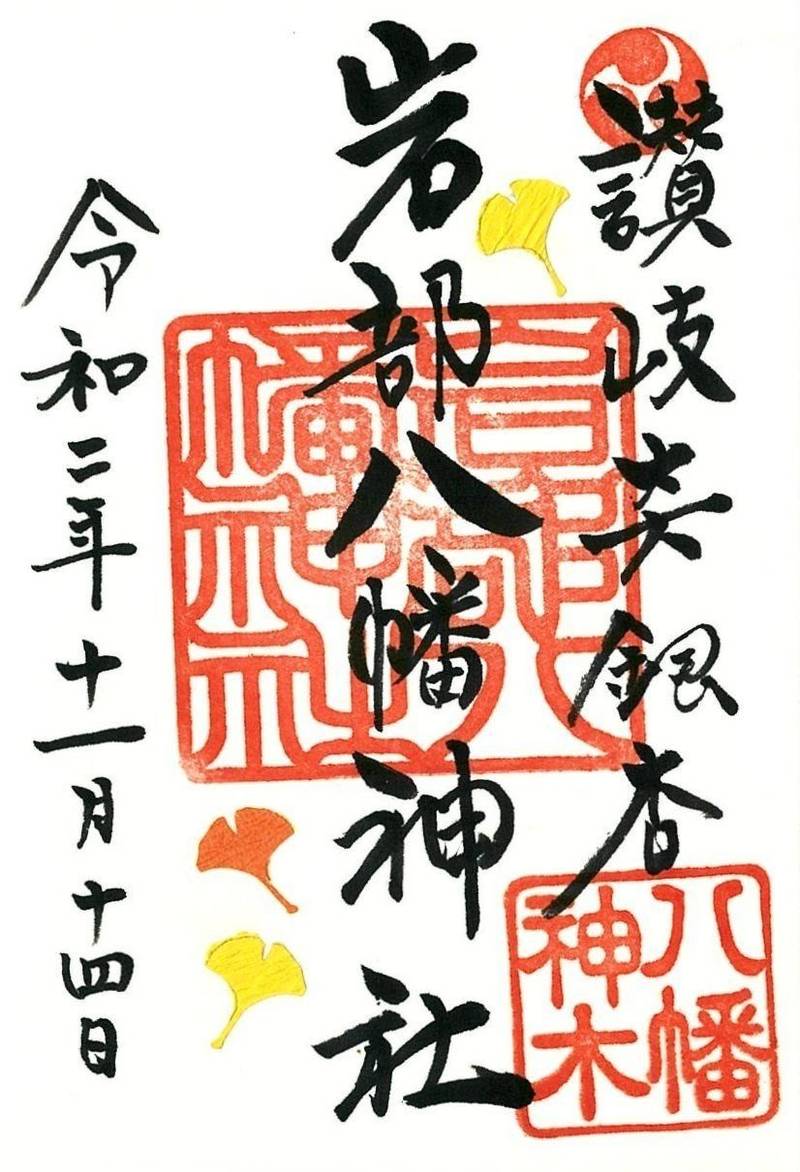 讃岐 銀杏
岩部八幡神社
令和二年十一月十四日
岩部八
幡神社
八幡
神木